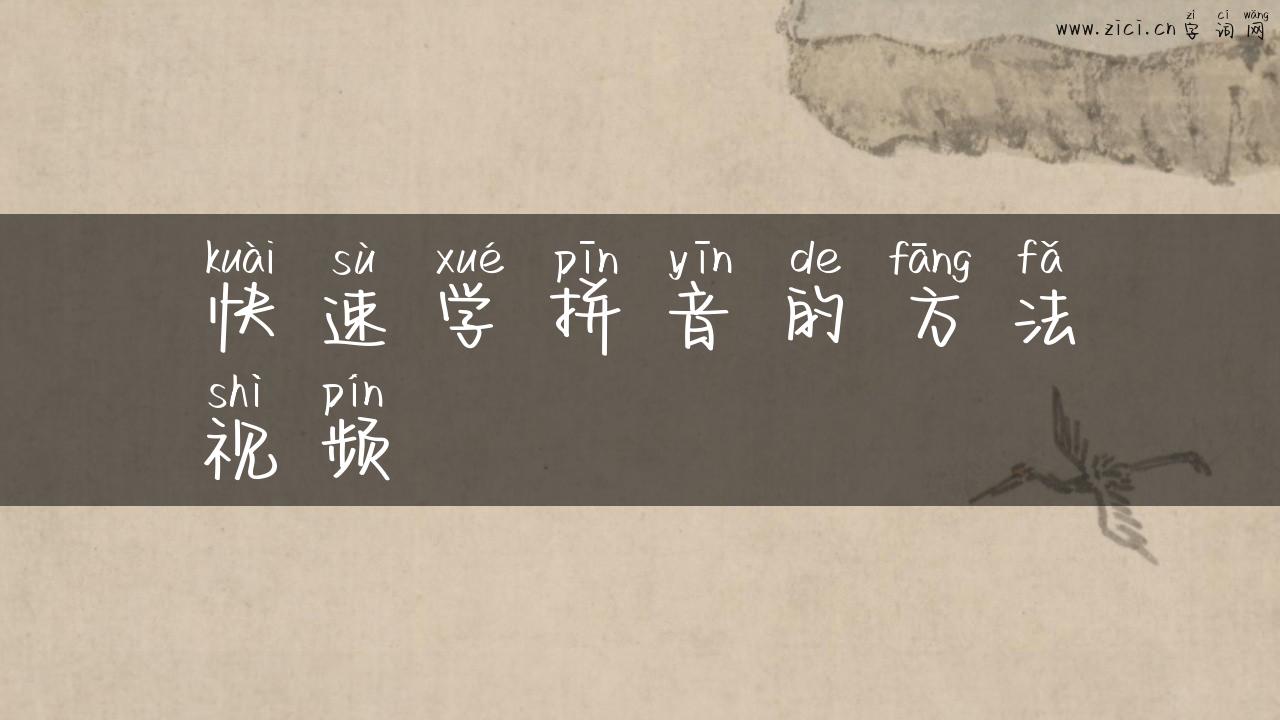 zì cí wǎng
www.zici.cn 字 词 网
kuài sù xué pīn yīn de fāng fǎ
快 速 学 拼 音 的 方 法
shì pín
视 频